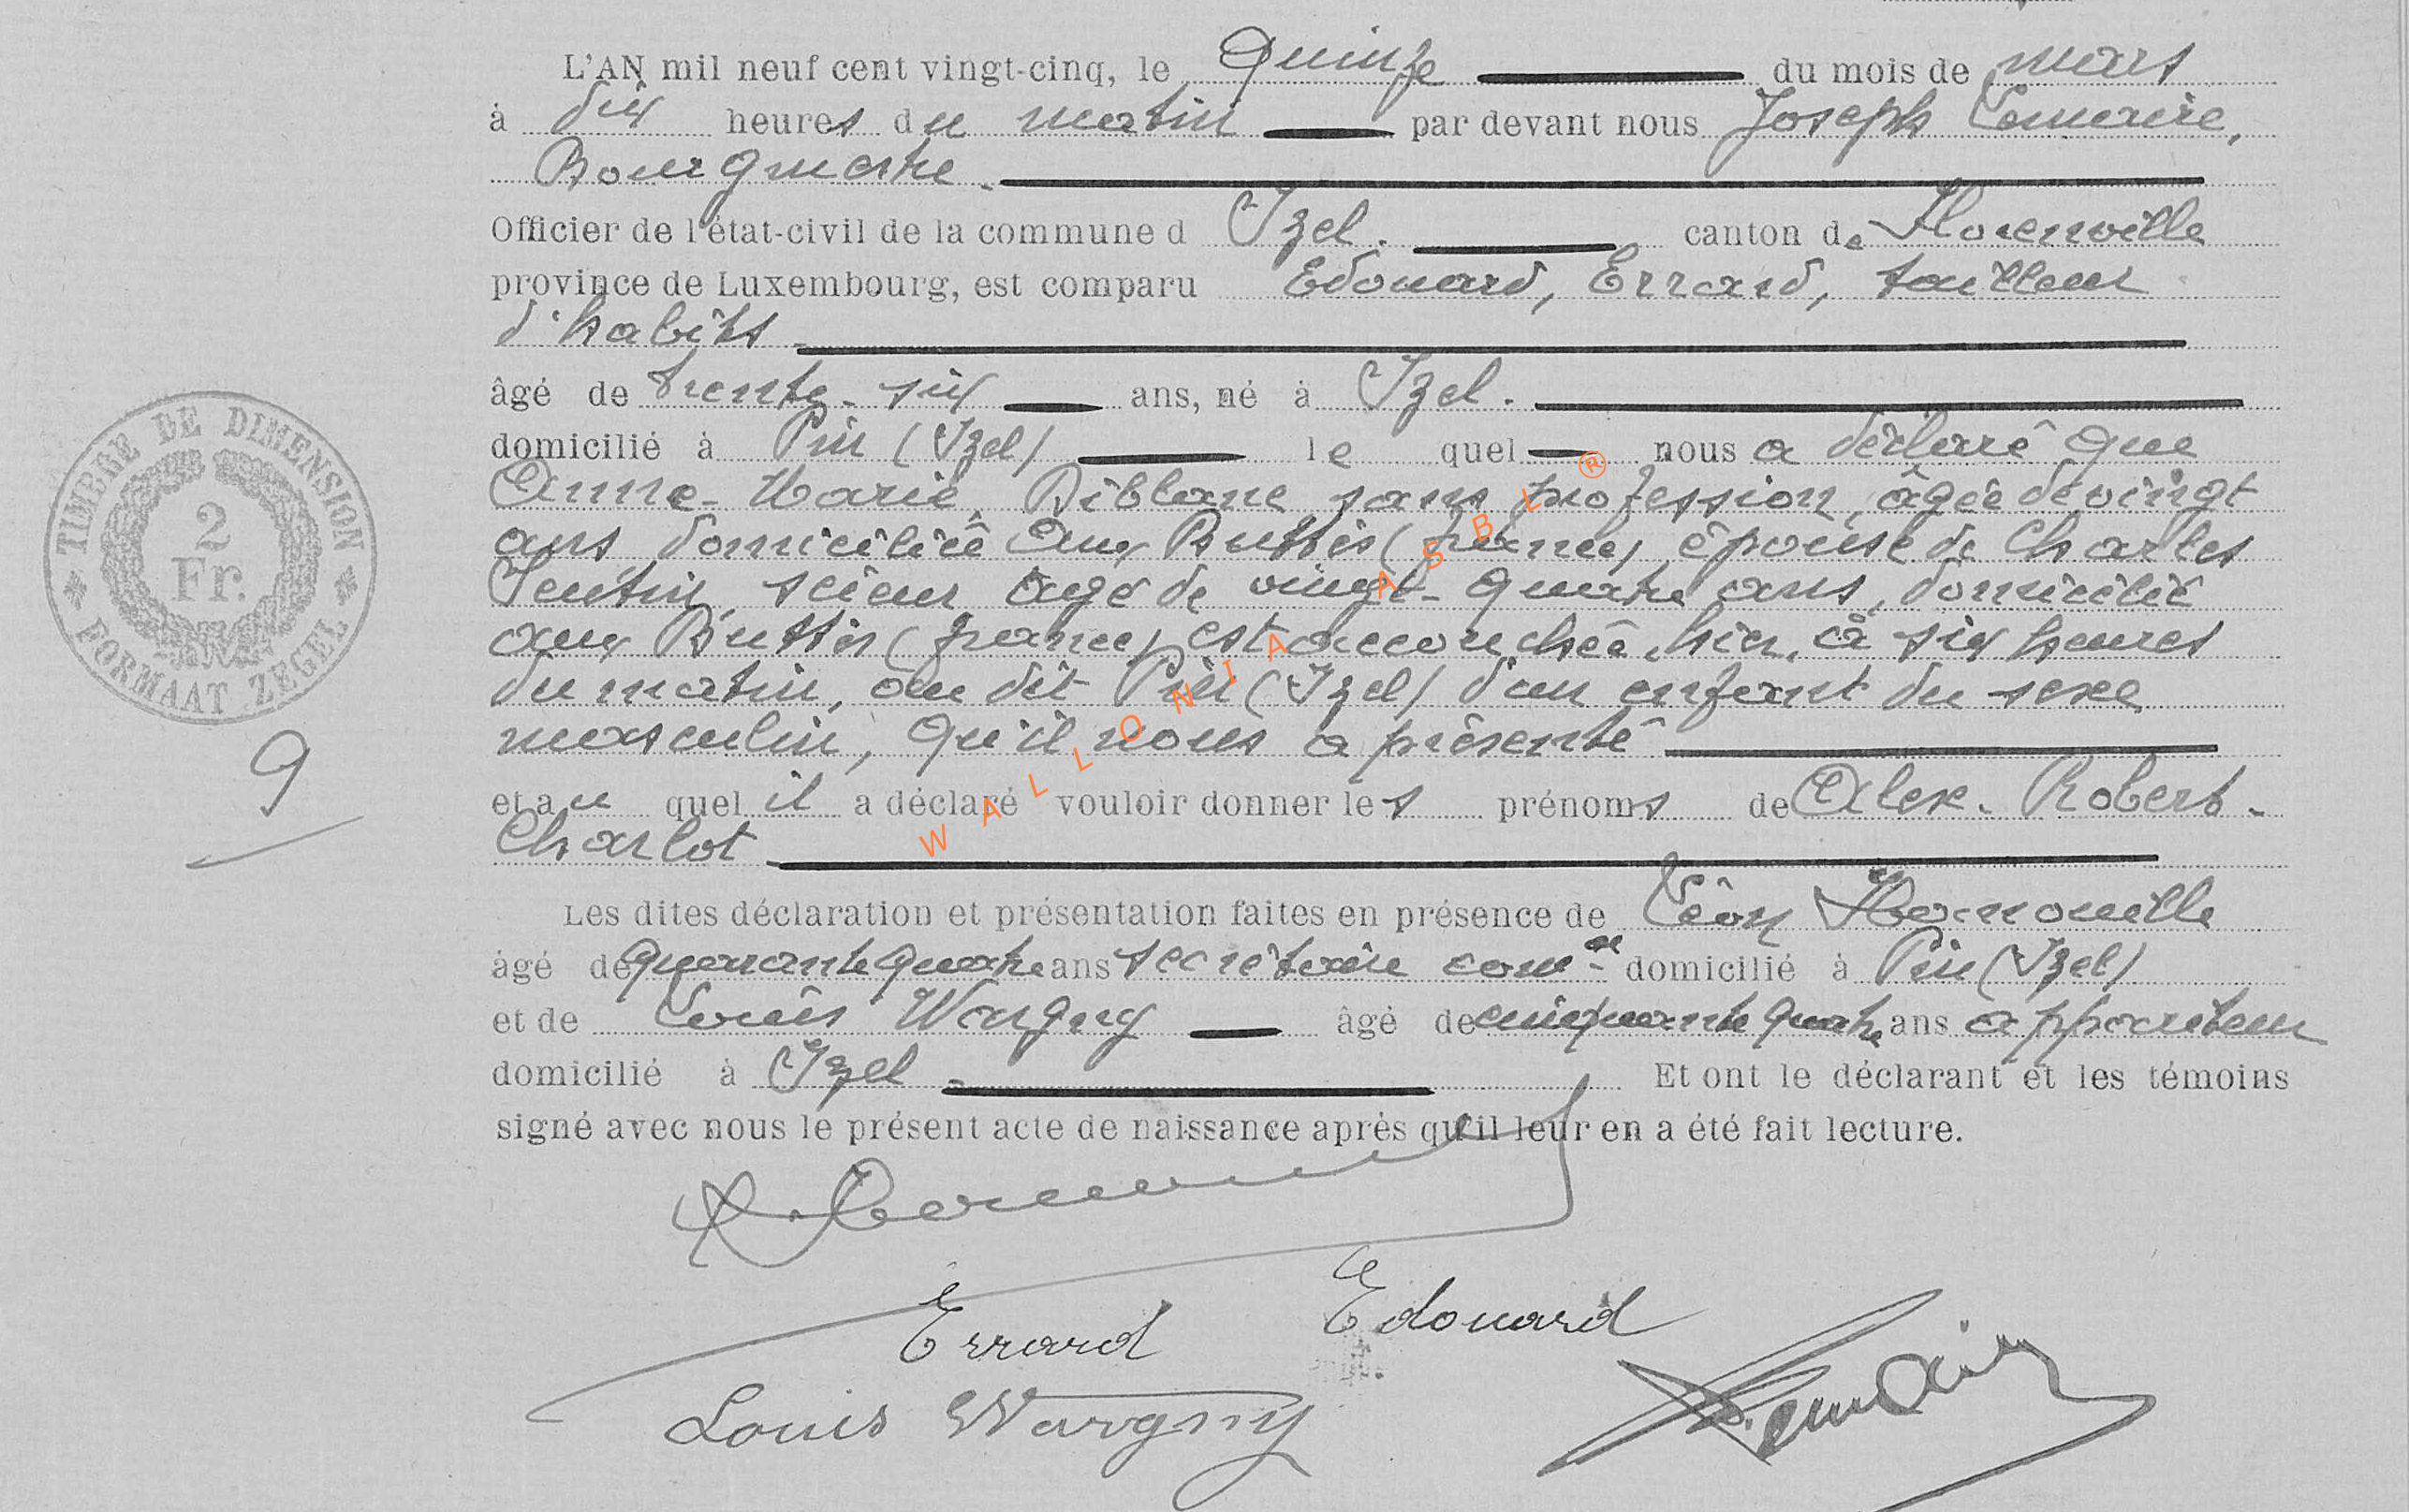 L'AN mil neuf cent vingt-cinq, le Quinze du mois de mars
à dix heures du matin par devant nous Joseph Lemaire,
Bourgmestre
Officier de l'état-civil de la commune d Izel. canton de Florenville
province de Luxembourg, est comparu Edouard, Errard, tailleur
d'habits
âgé de trente-six ans, né à Izel.
domicilié à Pin (Izel) le quel nous a déclaré que
Anne-Marie, sans profession, âgée de vingt
ans domiciliée aux Buttes (france) épouse de Charles
scieur âgé de vingt-quatre ans, domicilié
aux Buttes (france) est accouchée, hier, à six heures
du matin, au dit Pin (Izel) d'un enfant du sexe
masculin, qu'il nous a présenté
et au quel il a déclaré vouloir donner les prénoms de Alex-Robert-
Charlot
Les dites déclaration et présentation faites en présence de Léon
âgé de quarante quatre ans secrétaire com-al domicilié à Pin (Izel)
et de Louis Wargny âgé de cinquante quatre ans appariteur
domicilié à Izel Et ont le déclarant et les témoins
signé avec nous le présent acte de naissance après qu'il leur en a été fait lecture.
TIMBRE DE DIMENSION
2
Fr.
FORMAAT ZEGEL
9
WALLONIA ASBL ®
Errard Edouard
Louis Wargny
Lemaire